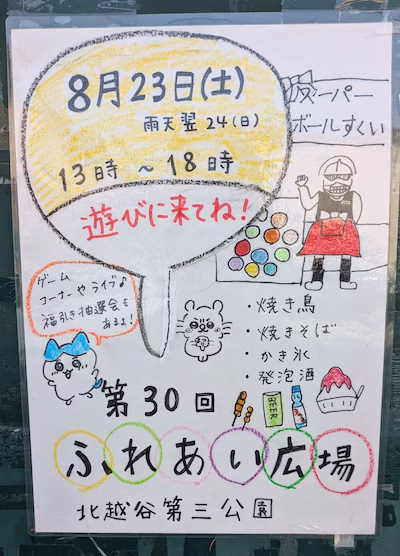 8月23日(土)
雨天翌24(日)
13時~18時
遊びに来てね!
スーパー
ボールすくい
ゲーム
コーナーやライブ♪
福引き抽選会も
あるよ!
・焼き鳥
・焼きそば
・かき氷
・発泡酒
BEER
第30回
ふれあい広場
北越谷第三公園